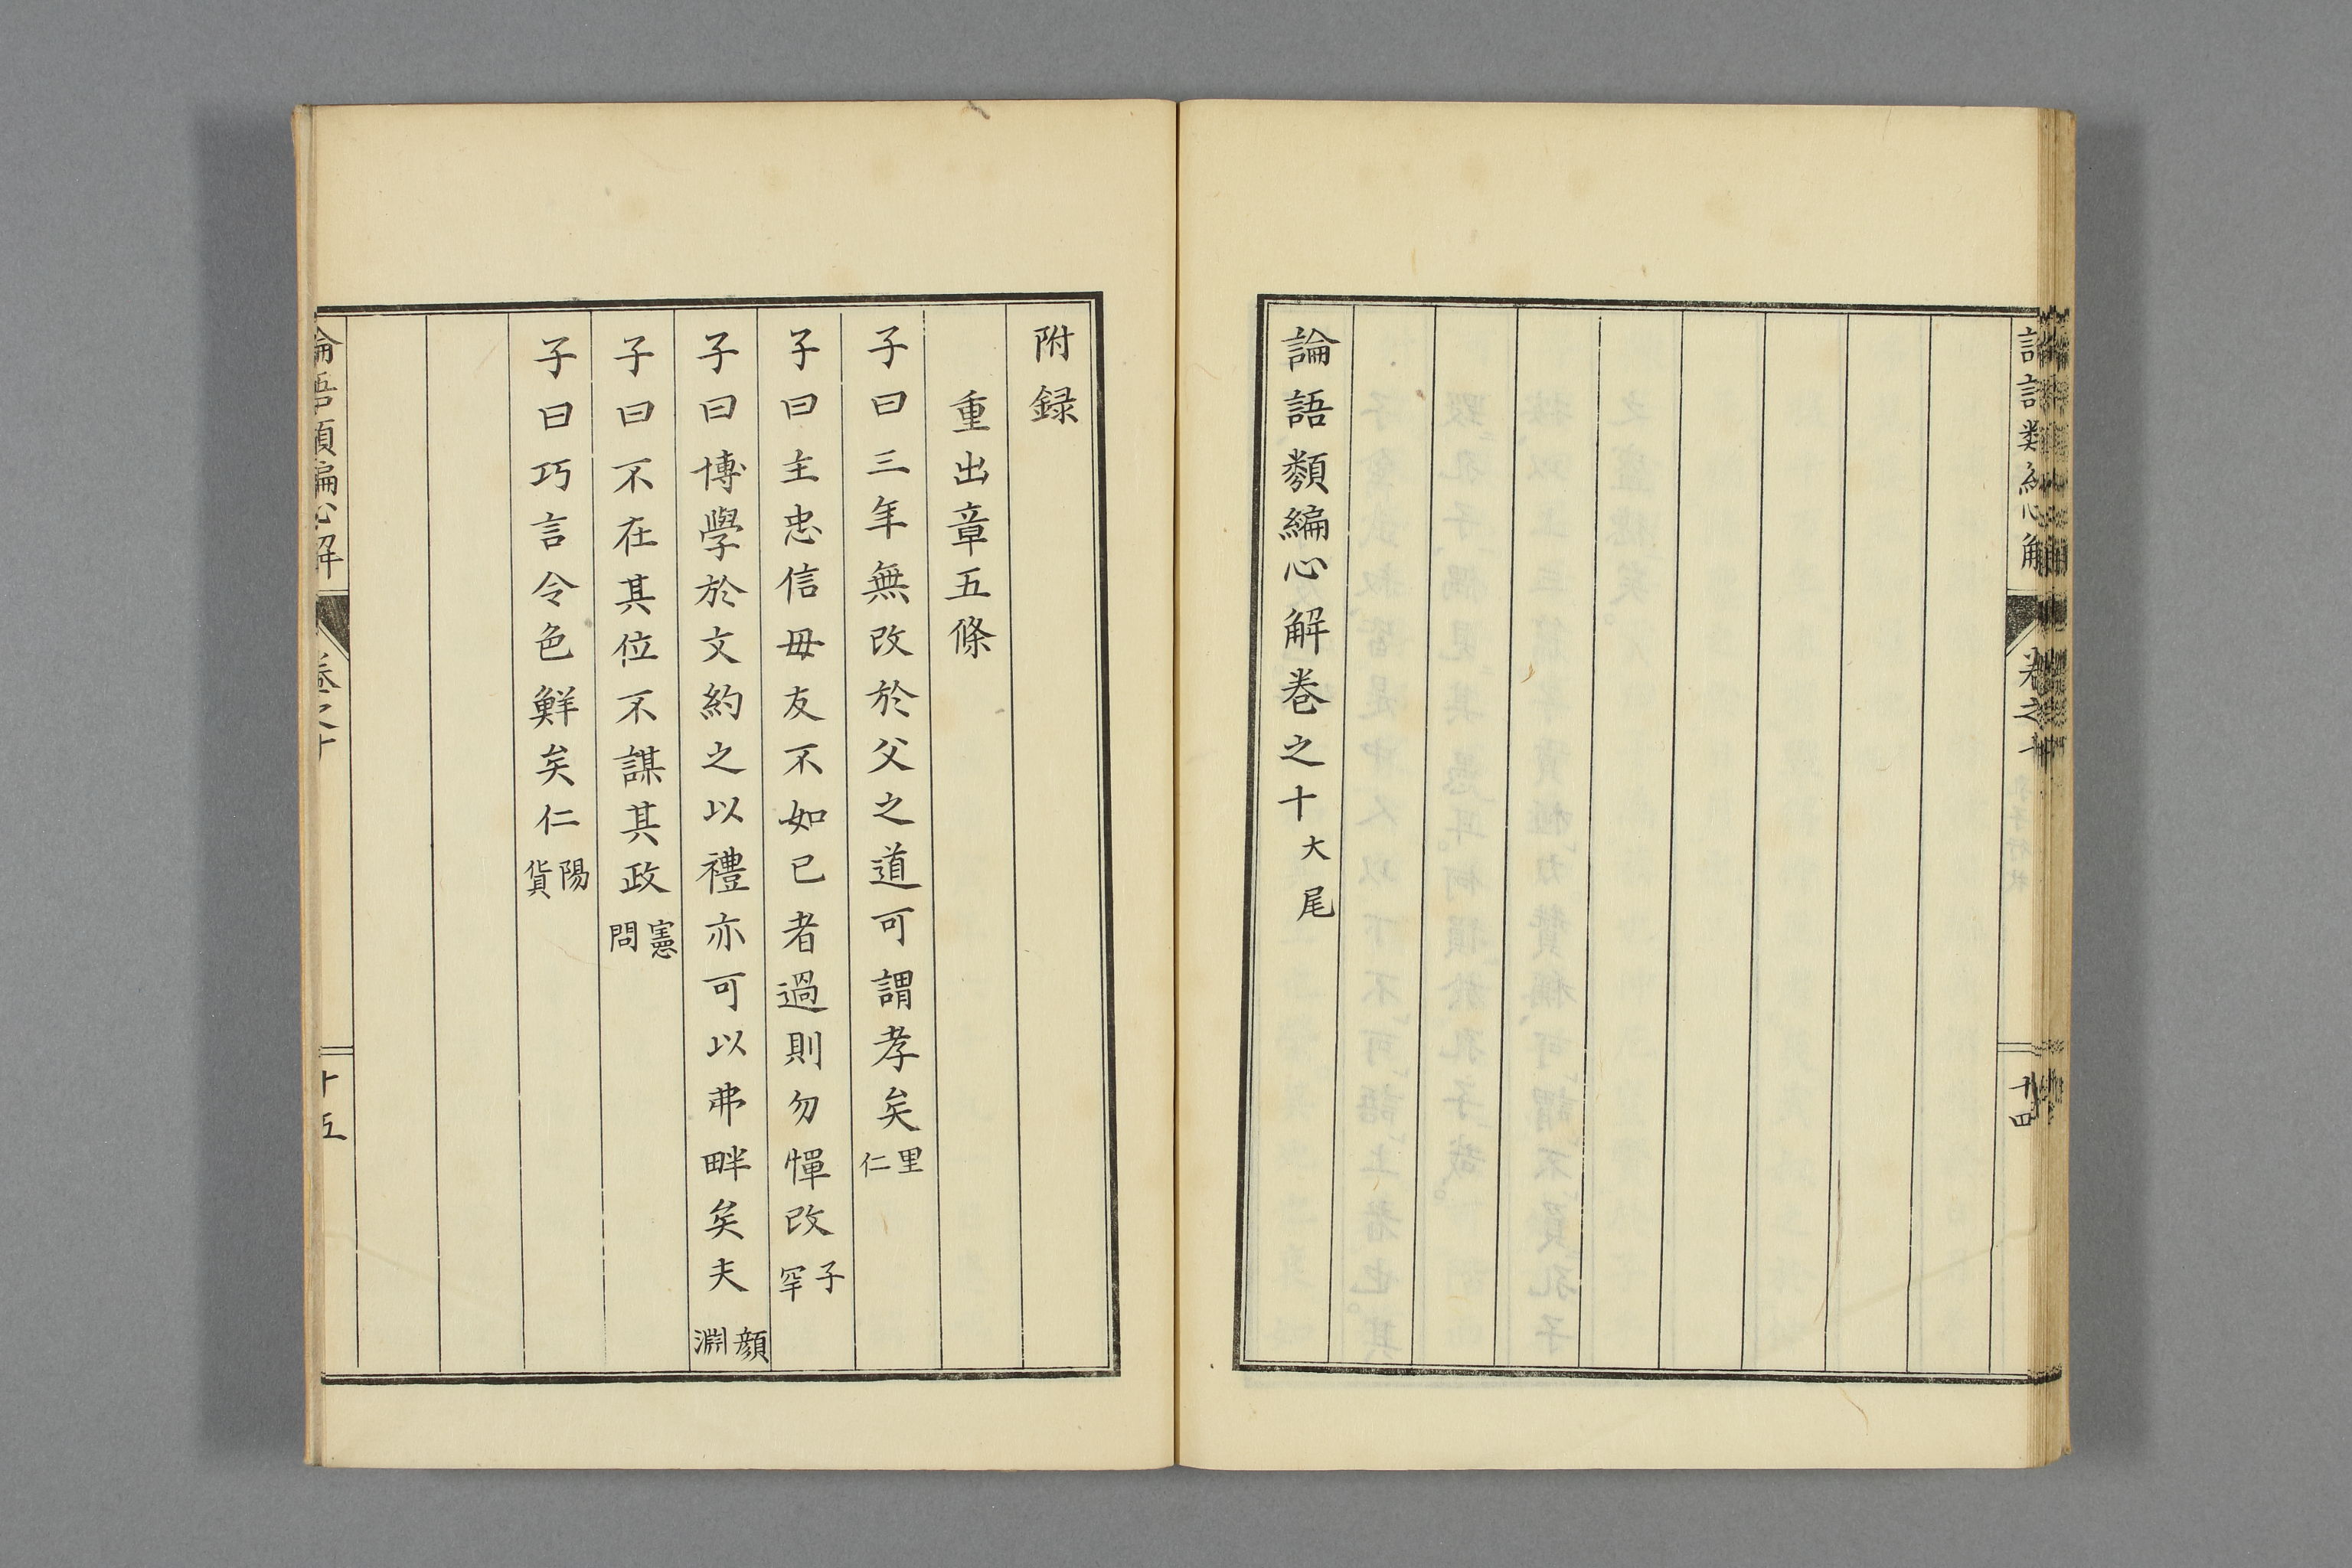 論語類編心解卷之十大尾
附録
重出章五條
子曰三年無改於父之道可謂孝矣里仁
子曰主忠信毋友不如已者過則勿憚改子罕
子曰博學於文約之以禮亦可以弗畔矣夫顏淵
子曰不在其位不謀其政憲問
子曰巧言令色鮮矣仁陽貨
論語類編心解 卷之十 十五